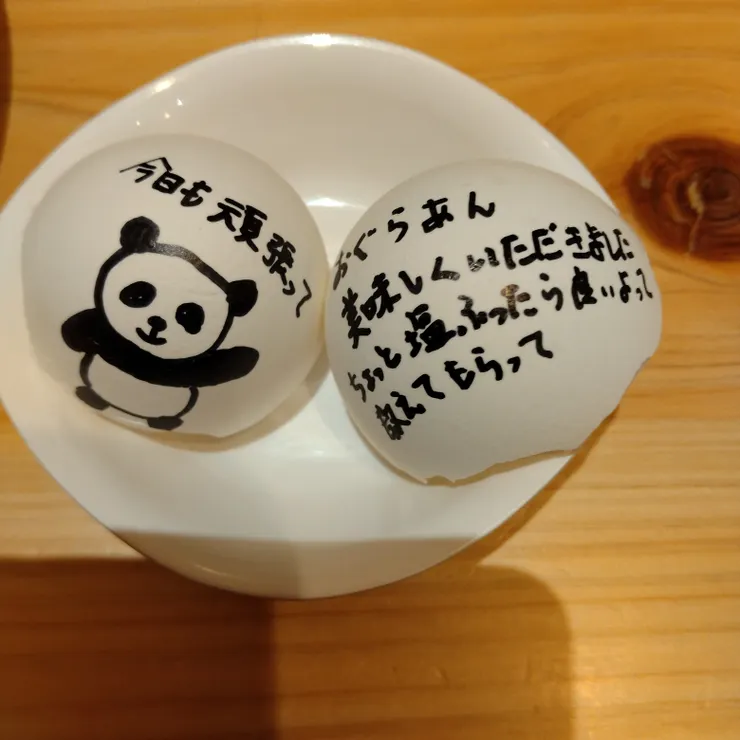 今日も頑張って
おぐらあん
美味しくいただきました
ちょっと塩ふったら良いよって
教えてもらって